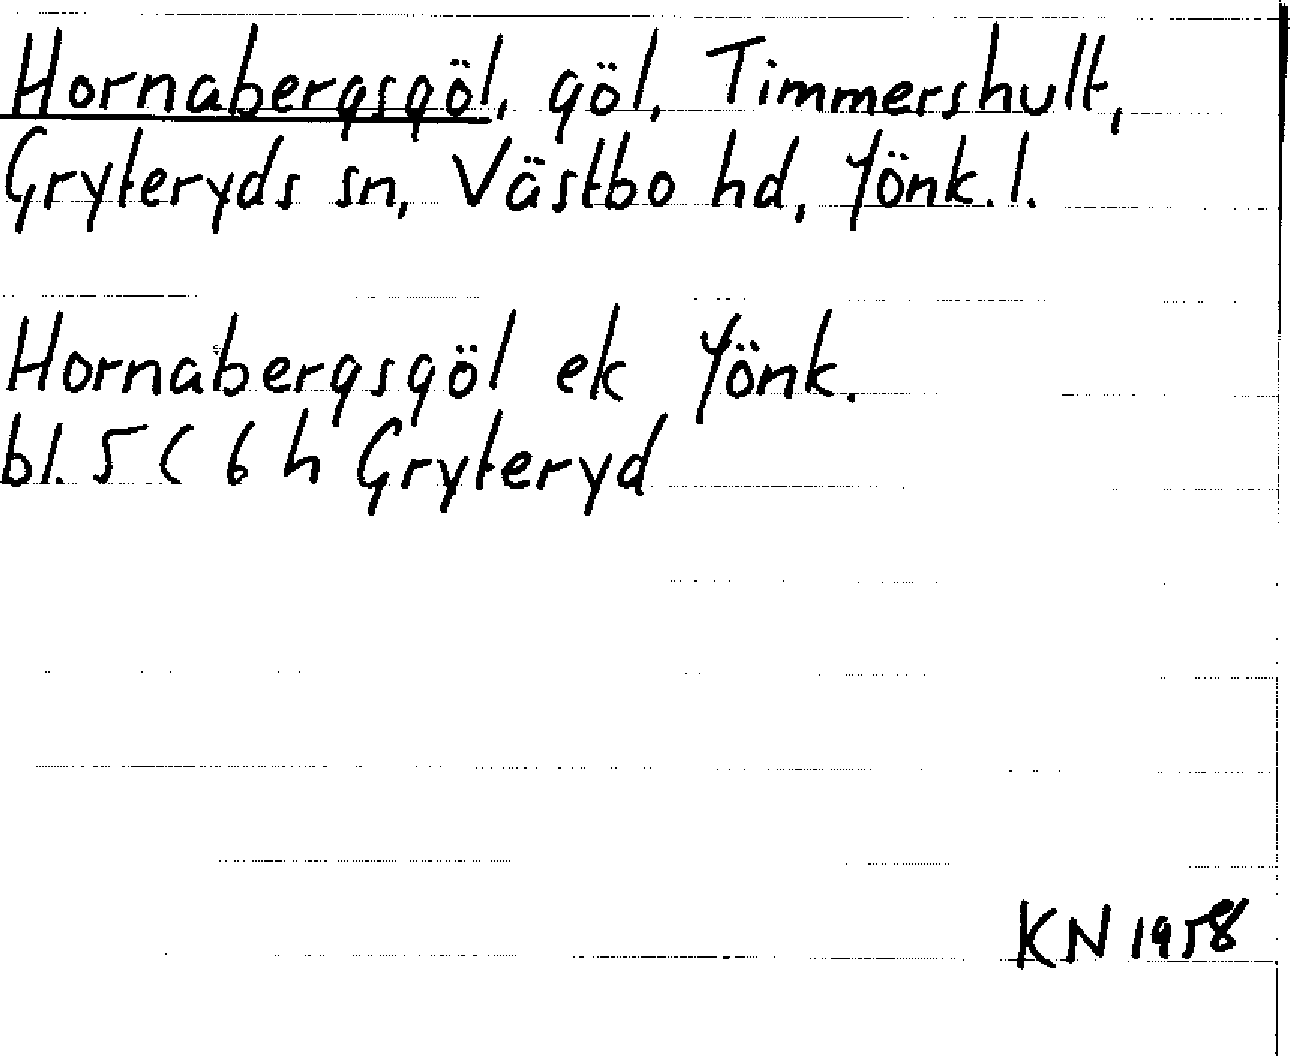 Hornabergsgöl, göl, Timmershult,
Gryteryds sn, Västbo hd, Jönk. l.
Hornabergsgöl ek Jönk.
bl. 5 C 6 h Gryteryd
KN 1958